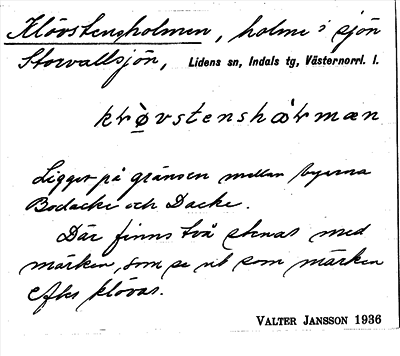 Klövstensholmen, holme i sjön
Storvallsjön, Lidens sn, Indals tg, Västernorrl. l.
Ligger på gränsen mellan byarna
Bodacke och Dacke.
Där finns två stenar med
märken, som se ut som märken
efter klövar.
VALTER JANSSON 1936